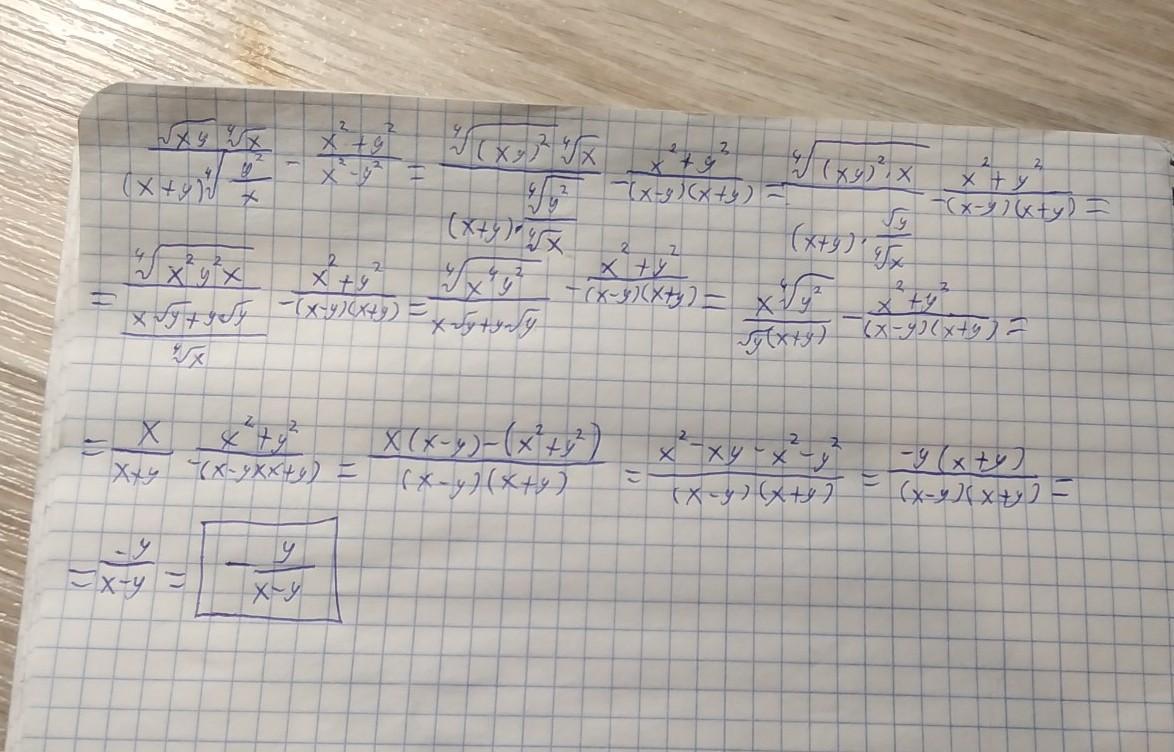 \frac{\sqrt{xy} \sqrt[4]{x}}{(x+y)\sqrt[4]{\frac{y^2}{x}}} - \frac{x^2+y^2}{x^2-y^2} = \frac{\sqrt[4]{(xy)^2} \sqrt[4]{x}}{(x+y) \cdot \frac{\sqrt[4]{y^2}}{\sqrt[4]{x}}} - \frac{x^2+y^2}{(x-y)(x+y)} = \frac{\sqrt[4]{(xy)^2 \cdot x}}{(x+y) \cdot \frac{\sqrt{y}}{\sqrt[4]{x}}} - \frac{x^2+y^2}{(x-y)(x+y)} =
= \frac{\sqrt[4]{x^2y^2x}}{\frac{x\sqrt{y}+y\sqrt{y}}{\sqrt[4]{x}}} - \frac{x^2+y^2}{(x-y)(x+y)} = \frac{\sqrt[4]{x^4y^2}}{x\sqrt{y}+y\sqrt{y}} - \frac{x^2+y^2}{(x-y)(x+y)} = \frac{x\sqrt[4]{y^2}}{\sqrt{y}(x+y)} - \frac{x^2+y^2}{(x-y)(x+y)} =
= \frac{x}{x+y} - \frac{x^2+y^2}{(x-y)(x+y)} = \frac{x(x-y)-(x^2+y^2)}{(x-y)(x+y)} = \frac{x^2-xy-x^2-y^2}{(x-y)(x+y)} = \frac{-y(x+y)}{(x-y)(x+y)} =
= \frac{-y}{x-y} = -\frac{y}{x-y}